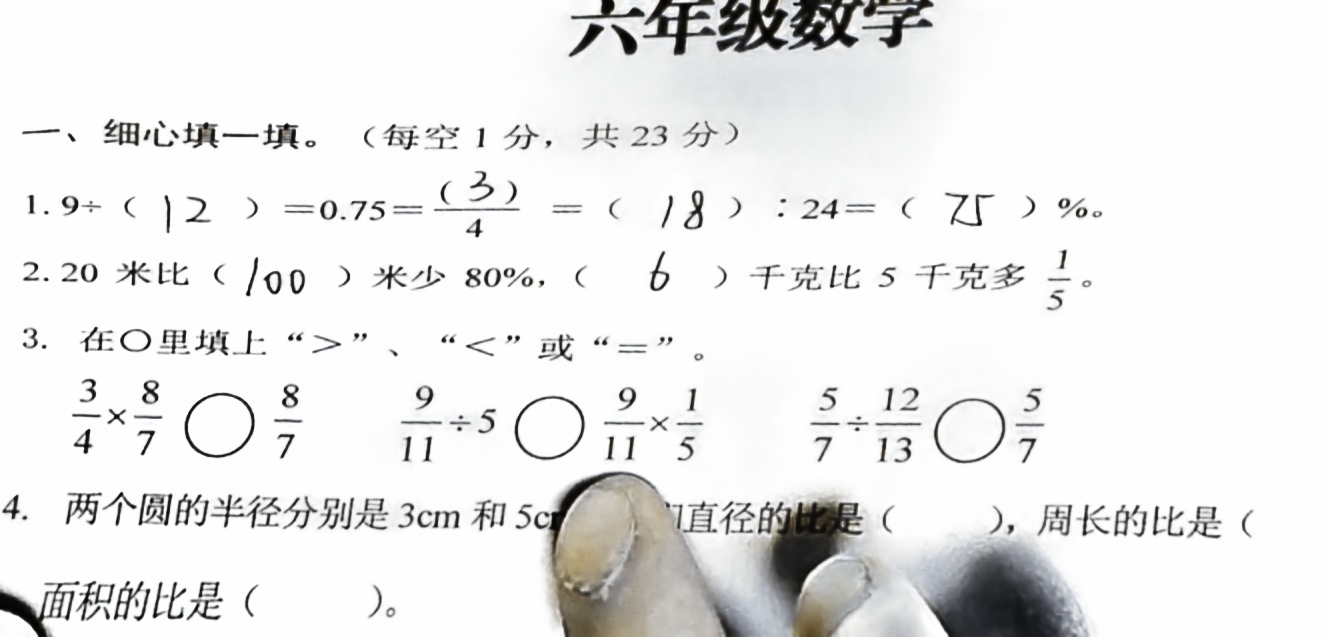 六年级数学
一、细心填一填。（每空 1 分，共 23 分）
1. 9÷（ 12 ）=0.75=(3)/4 =（ 18 ）：24=（ 75 ）%。
2. 20 米比（ 100 ）米少 80%，（ 6 ）千克比 5 千克多 1/5。
3. 在○里填上“>”、“<”或“=”。
3/4×8/7 ○ 8/7 9/11÷5 ○ 9/11×1/5 5/7÷12/13 ○ 5/7
4. 两个圆的半径分别是 3cm 和 5c 直径的比是（ ），周长的比是（
面积的比是（ ）。